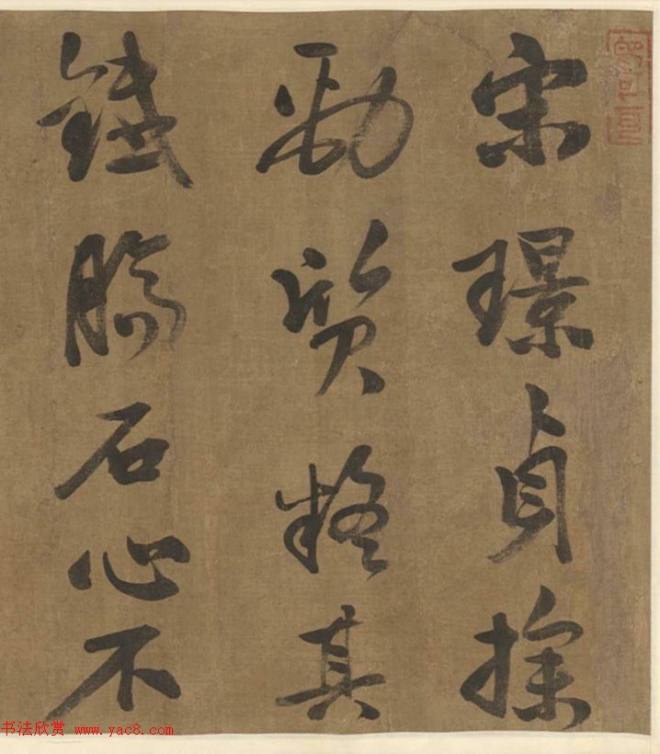 宋璟貞操
勁質疑其
鐵腸石心不
书法欣赏 www.yac8.com